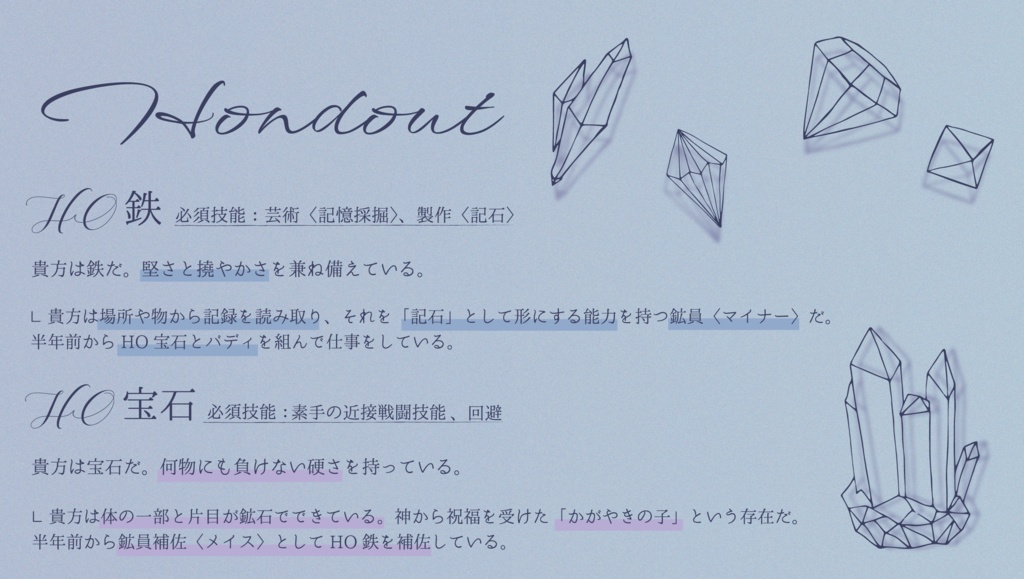 Hondout
HO 鉄 必須技能：芸術〈記憶採掘〉、製作〈記石〉
貴方は鉄だ。堅さと撓やかさを兼ね備えている。
∟ 貴方は場所や物から記録を読み取り、それを「記石」として形にする能力を持つ鉱員〈マイナー〉だ。
半年前から HO 宝石とバディを組んで仕事をしている。
HO 宝石 必須技能：素手の近接戦闘技能、回避
貴方は宝石だ。何物にも負けない硬さを持っている。
∟ 貴方は体の一部と片目が鉱石でできている。神から祝福を受けた「かがやきの子」という存在だ。
半年前から鉱員補佐〈メイス〉として HO 鉄を補佐している。